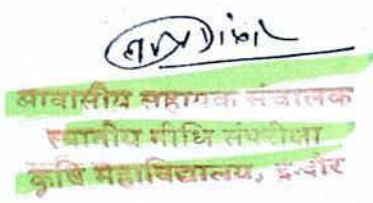 आवासीय सहायक संचालक
स्थानीय निधि संपरीक्षा
कृषि महाविद्यालय, इन्दौर